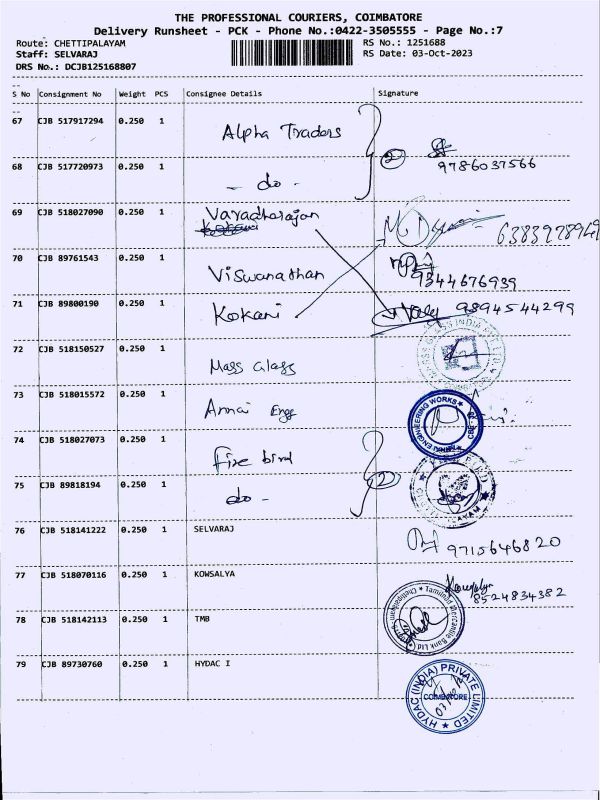 THE PROFESSIONAL COURIERS, COIMBATORE
Delivery Runsheet - PCK - Phone No.:0422-3505555 - Page No.:7
Route: CHETTIPALAYAM RS No.: 1251688
Staff: SELVARAJ RS Date: 03-Oct-2023
DRS No.: DCJB125168807
S No Consignment No Weight PCS Consignee Details Signature
67 CJB 517917294 0.250 1 Alpha Traders
2 9786037566
68 CJB 517720973 0.250 1 - do -
69 CJB 518027090 0.250 1 Varadharajan 6383978949
70 CJB 89761543 0.250 1 Viswanathan 9344676939
71 CJB 89800190 0.250 1 Kokani 9894544299
72 CJB 518150527 0.250 1 Mass Glass
73 CJB 518015572 0.250 1 Annai Engg ENGINEERING WORKS
74 CJB 518027073 0.250 1 Fire bird
2
75 CJB 89818194 0.250 1 do -
76 CJB 518141222 0.250 1 SELVARAJ 9715646820
77 CJB 518070116 0.250 1 KOWSALYA Kowsalya
8524834382
78 CJB 518142113 0.250 1 TMB Tamilnad Mercantile Bank Ltd
79 CJB 89730760 0.250 1 HYDAC I HYDAC (INDIA) PRIVATE LIMITED
COIMBATORE